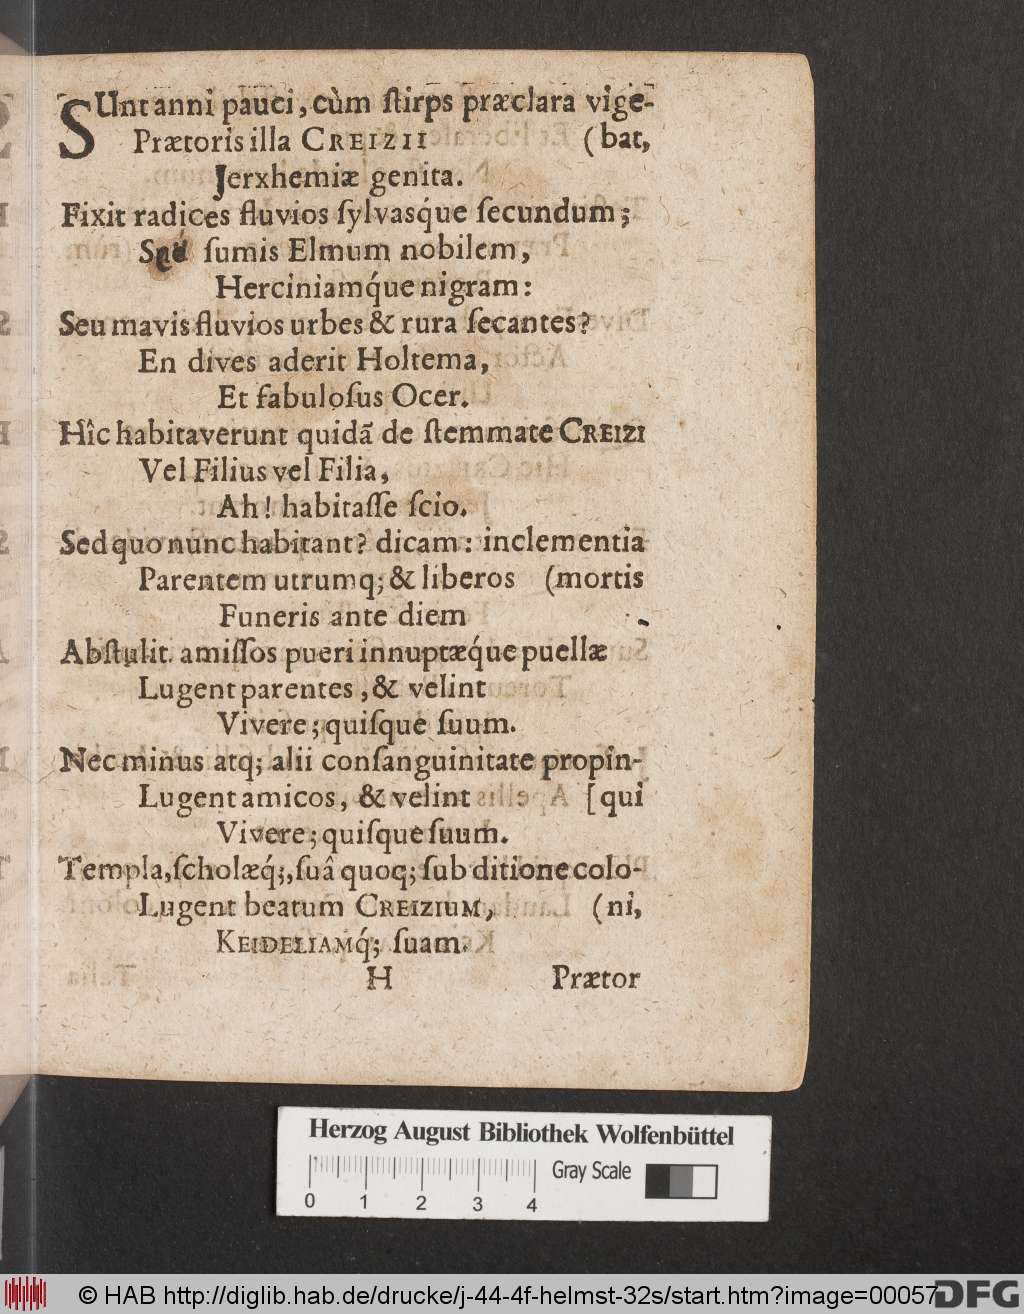 SUnt anni pauci, cùm ſtirps præclara vige-
Prætoris illa CREIZII (bat,
Jerxhemiæ genita.
Fixit radices fluvios ſylvasq́ue ſecundum;
ſumis Elmum nobilem,
Herciniamq́ue nigram:
Seu mavis fluvios urbes & rura ſecantes?
En dives aderit Holtema,
Et fabuloſus Ocer.
Hîc habitaverunt quidã de ſtemmate CREIZI
Vel Filius vel Filia,
Ah! habitaſſe ſcio.
Sed quo nunc habitant? dicam: inclementia
Parentem utrumq; & liberos (mortis
Funeris ante diem
Abſtulit. amiſſos pueri innuptæq́ue puellæ
Lugent parentes, & velint
Vivere; quiſque ſuum.
Nec minus atq; alii conſanguinitate propin-
Lugent amicos, & velint [qui
Vivere; quiſque ſuum.
Templa, ſcholæq́;, ſuâ quoq; ſub ditione colo-
Lugent beatum CREIZIUM, (ni,
KEIDELIAMq́; ſuam.
H Prætor
Herzog August Bibliothek Wolfenbüttel
Gray Scale
0 1 2 3 4
© HAB http://diglib.hab.de/drucke/j-44-4f-helmst-32s/start.htm?image=00057
DFG